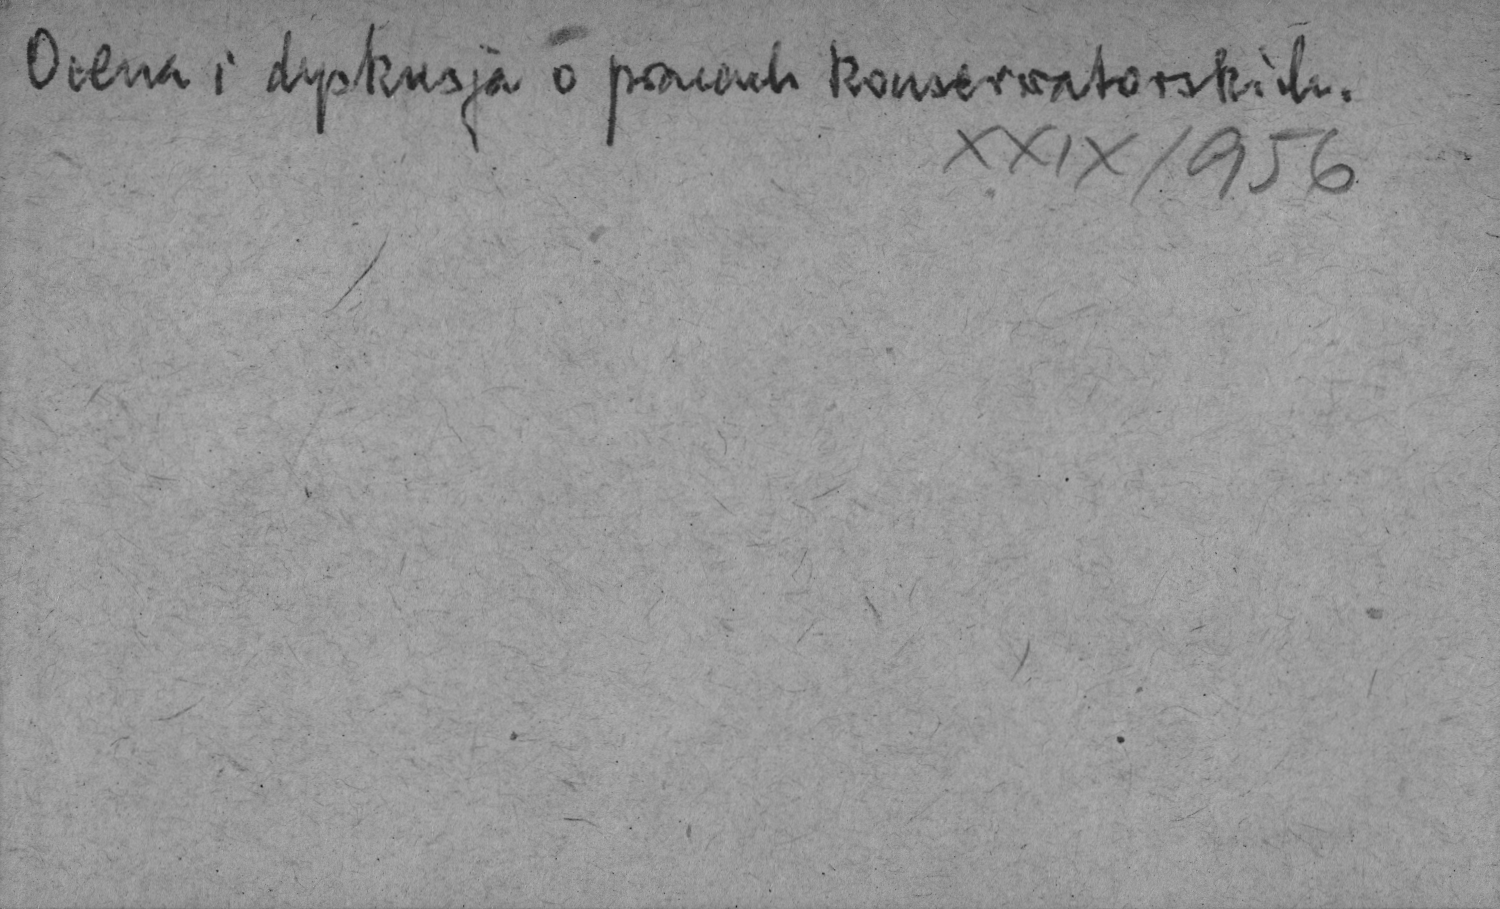 Ocena i dyskusja o pracach konserwatorskich.
XXIX/956